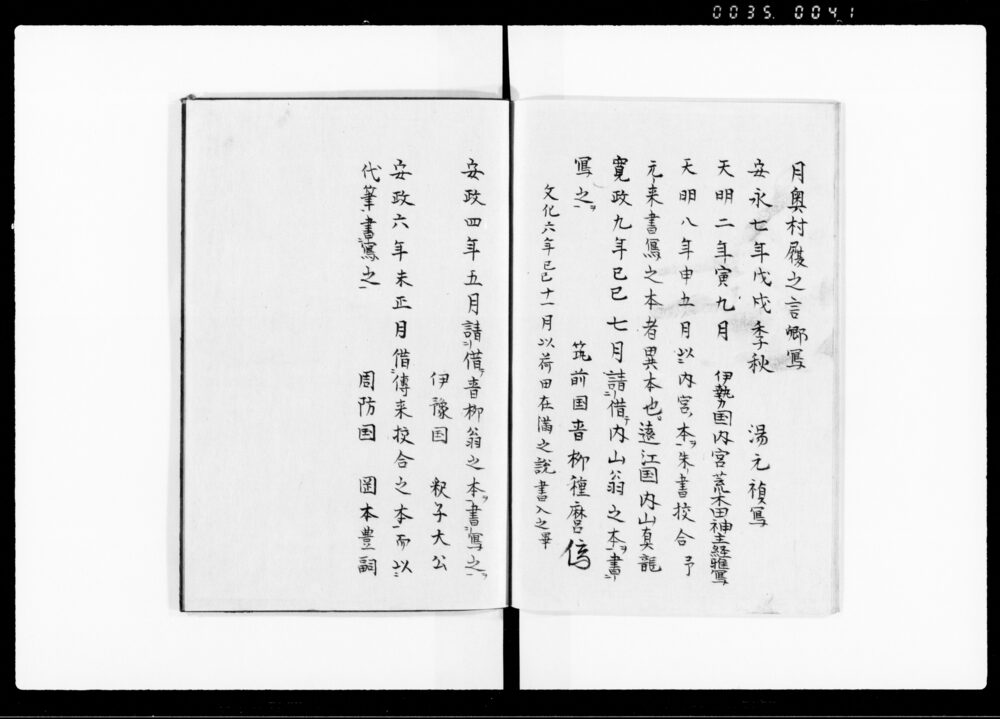 0035.0041
月奥村履之言郷写
安永七年戊戌季秋 湯元禎写
天明二年寅九月 伊勢国内宮荒木田神主経雅写
天明八年申五月以内宮本ヲ朱書挍合予
元来書写之本者異本也遠江国内山真龍
寛政九年巳巳七月請借内山翁之本ヲ書
写之ヲ 筑前国香柳種麿
文化六年己巳十一月以荷田在満之説書入之畢
安政四年五月請借香柳翁之本ヲ書写之ヲ
伊豫国 釈子大公
安政六年未正月借傳来挍合之本而以
代筆書写之
周防国 岡本豊嗣